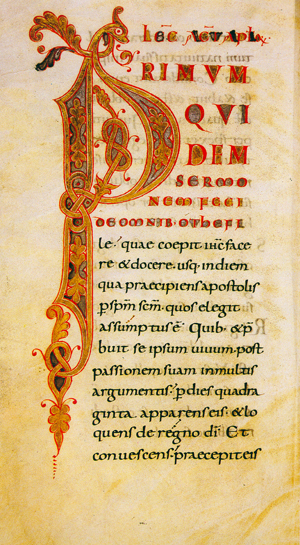 LEC
PRIMVM
QVI
DEM
SERMO
NEM FECI
DEOMNIB·OTHEOFI
le. quae coepit ihc̄ face
re & docere. usq. indiem
qua praecipiens apostolis
p̄ sp̄m sc̄m. quos elegit
assumptus ē. Quib. & p̄
buit se ipsum uiuum. post
passionem suam inmultis
argumentis. p̄ dies quadra
ginta apparens eis. & lo
quens de regno dī. Et
convescens. praecepit eis